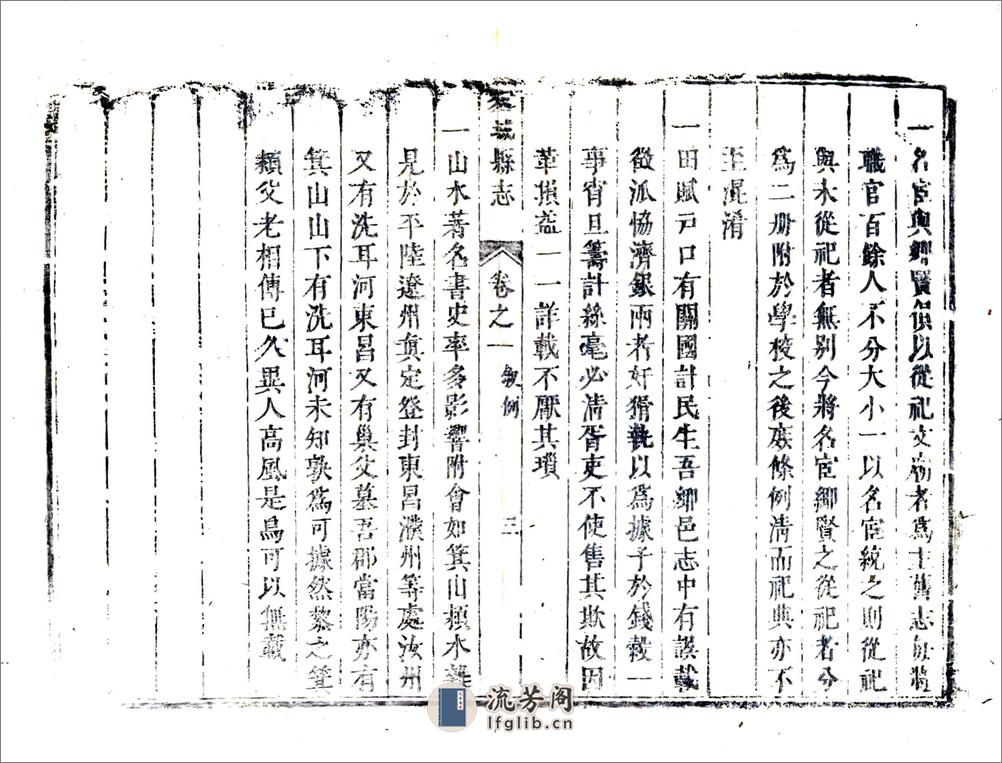 一名宦與鄉賢俱以從祀文廟者爲主舊志每將
職官百餘人不分大小一以名宦統之則從祀
與未從祀者無别今將名宦鄉賢之從祀者分
爲二册附於學校之後庶條例淸而祀典亦不
至混淆
一田賦戸口有關國計民生吾鄉邑志中有誤載
徵派協濟銀兩者奸猾執以爲據予於錢穀一
事宵旦籌計絲毫必淸胥吏不使售其欺故因
革損益一一詳載不厭其瑣
城縣志
卷之一
敘例
三
一山水著名書史率多影響附會如箕山潁水
見於平陸遼州眞定登封東昌濮州等處汝州
又有洗耳河東昌又有巢父墓吾郡當陽亦有
箕山山下有洗耳河未知孰爲可據然黎之箕
潁父老相傳已久異人高風是烏可以無載
流芳阁
lfglib.cn